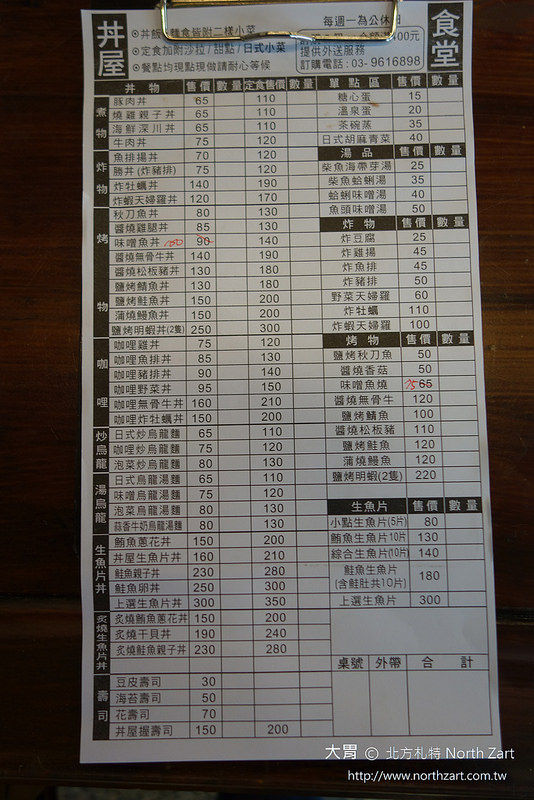 丼屋
食堂
每週一為公休日
⊙定食加附沙拉/甜點/日式小菜
⊙餐點均現點現做請耐心等候
提供外送服務
訂購電話:03-9616898
丼 物 售價 數量 定食售價 數量
煮物
豚肉丼 65 110
燒雞親子丼 65 110
海鮮深川丼 65 110
牛肉丼 75 120
炸物
魚排揚丼 70 120
勝丼(炸豬排) 75 120
炸牡蠣丼 140 190
炸蝦天婦羅丼 120 170
烤物
秋刀魚丼 80 130
醬燒雞腿丼 85 130
味噌魚丼 100 90 140
醬燒無骨牛丼 140 190
醬燒松板豬丼 130 180
鹽烤鯖魚丼 130 180
鹽烤鮭魚丼 150 200
蒲燒鰻魚丼 150 200
鹽烤明蝦丼(2隻) 250 300
咖哩
咖哩雞丼 75 120
咖哩魚排丼 85 130
咖哩豬排丼 90 140
咖哩野菜丼 95 150
咖哩無骨牛丼 160 210
咖哩炸牡蠣丼 150 200
炒烏龍
日式炒烏龍麵 65 110
咖哩炒烏龍麵 75 120
泡菜炒烏龍麵 80 130
湯烏龍
日式烏龍湯麵 65 110
味噌烏龍湯麵 75 120
泡菜烏龍湯麵 80 130
蒜香牛奶烏龍湯麵 80 130
生魚片丼
鮪魚蔥花丼 150 200
丼屋生魚片丼 160 210
鮭魚親子丼 230 280
鮭魚卵丼 250 300
上選生魚片丼 300 350
炙燒生魚片丼
炙燒鮪魚蔥花丼 150 200
炙燒干貝丼 190 240
炙燒鮭魚親子丼 230 280
壽司
豆皮壽司 30
海苔壽司 50
花壽司 70
丼屋握壽司 150 200
單點區 售價 數量
糖心蛋 15
溫泉蛋 20
茶碗蒸 35
日式胡麻青菜 40
湯品 售價 數量
柴魚海帶芽湯 25
柴魚蛤蜊湯 35
蛤蜊味噌湯 40
魚頭味噌湯 50
炸物 售價 數量
炸豆腐 25
炸雞揚 45
炸魚排 45
炸豬排 50
野菜天婦羅 60
炸牡蠣 110
炸蝦天婦羅 100
烤物 售價 數量
鹽烤秋刀魚 50
醬燒香菇 50
味噌魚燒 75 65
醬燒無骨牛 120
鹽烤鯖魚 100
醬燒松板豬 110
鹽烤鮭魚 120
蒲燒鰻魚 120
鹽烤明蝦(2隻) 220
生魚片 售價 數量
小點生魚片(5片) 80
鮪魚生魚片(10片) 130
綜合生魚片(10片) 140
鮭魚生魚片
(含鮭肚共10片) 180
上選生魚片 300
桌號 外帶 合計
大胃 © 北方札特 North Zart
http://www.northzart.com.tw